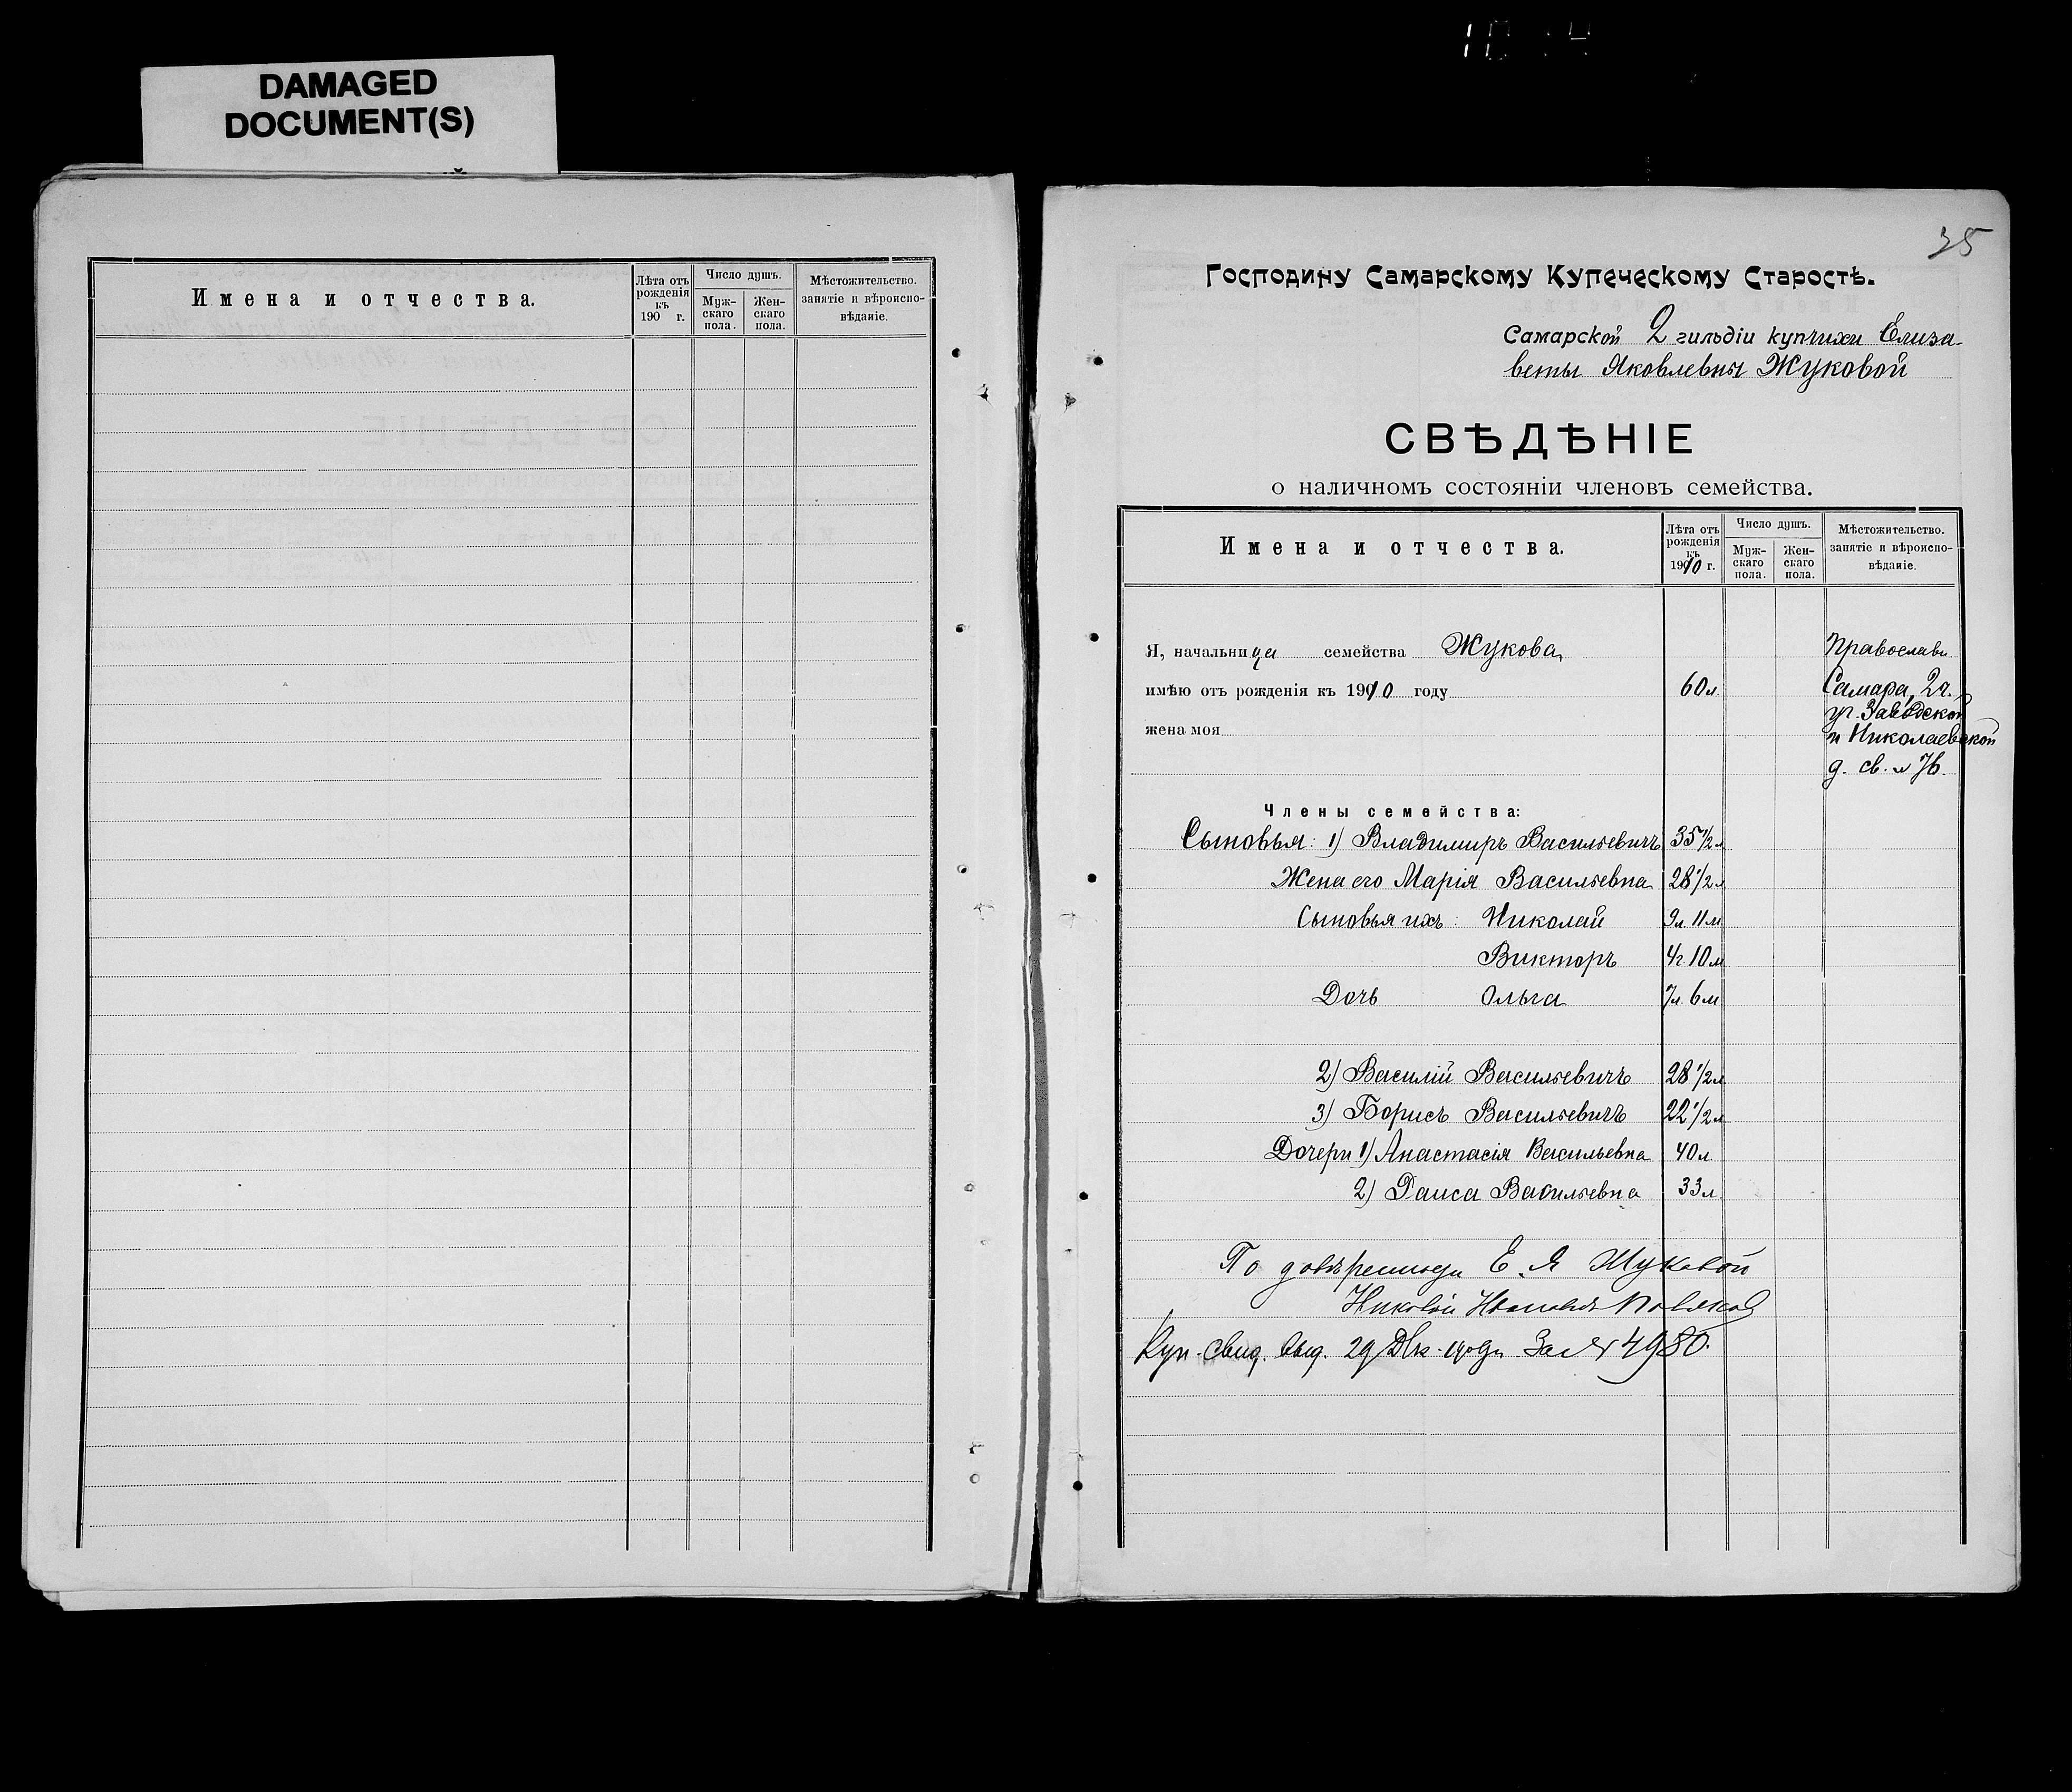 DAMAGED
DOCUMENT(S)
Имена и отчества.
Лѣта отъ рожденія къ 190 г.
Число душъ.
Муж-скаго пола.
Жен-скаго пола.
Мѣстожительство. занятіе и вѣроиспо-вѣданіе.
35
Господину Самарскому Купеческому Старостѣ.
Самарской 2 гильдіи купчихи Елиза-
веты Яковлевны Жуковой
СВѢДѢНІЕ
о наличномъ состояніи членовъ семейства.
Имена и отчества.
Лѣта отъ рожденія къ 1910 г.
Число душъ.
Муж-скаго пола.
Жен-скаго пола.
Мѣстожительство. занятіе и вѣроиспо-вѣданіе.
Я, начальница семейства Жукова, Православн
имѣю отъ рожденія къ 1910 году 60 л. Самара, 2 ч.
уг. Заводской
жена моя и Николаевской
д. св. № 76.
Члены семейства:
Сыновья: 1) Владимиръ Васильевичъ 35 1/2 л
Жена его Марія Васильевна 28 1/2 л
Сыновья ихъ: Николай 9 л. 11 м
Викторъ 4 г. 10 м
Дочь Ольга 7 л. 6 м
2) Василій Васильевичъ 28 1/2 л
3) Борисъ Васильевичъ 22 1/2 л
Дочери 1) Анастасія Васильевна 40 л
2) Раиса Васильевна 33 л.
По Е. Я Жуковой
Куп. свид. выд. 29 Дек. за № 4980.